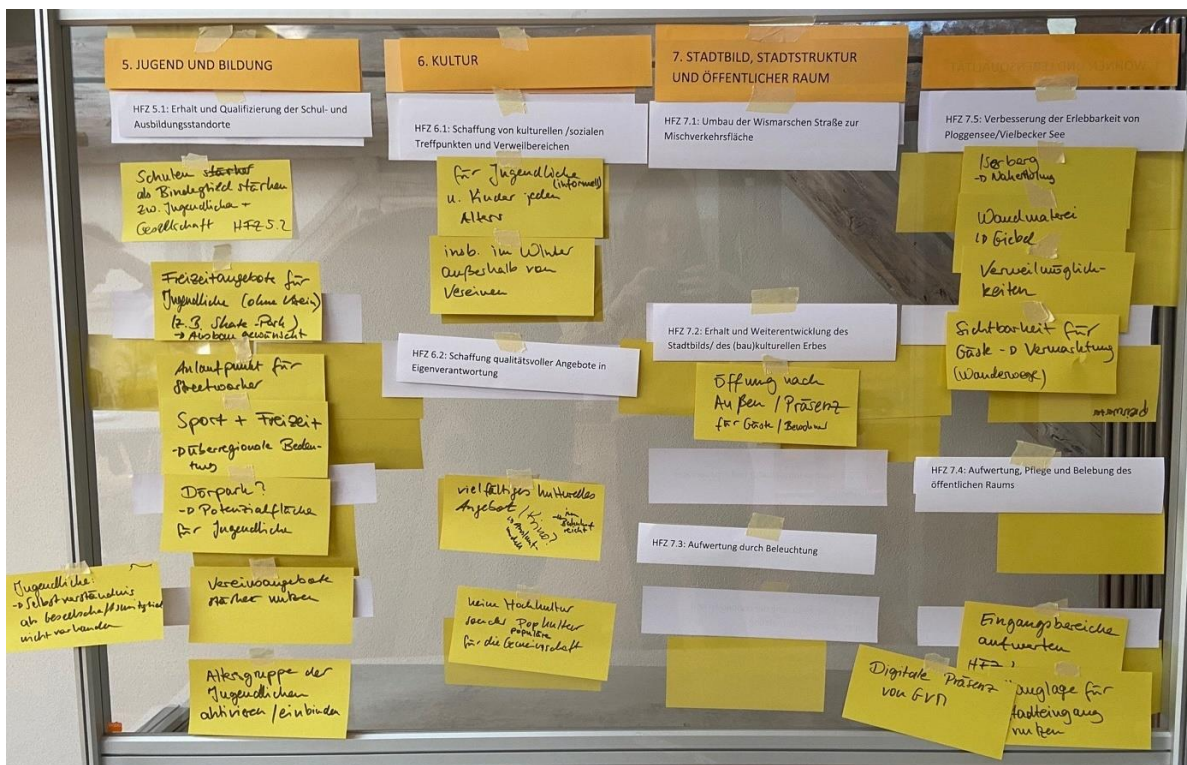 5. JUGEND UND BILDUNG
HFZ 5.1: Erhalt und Qualifizierung der Schul- und
Ausbildungsstandorte
Schulen stärker
als Bindeglied stärken
zw. Jugendlichen +
Gesellschaft HFZ 5.2
Freizeitangebote für
Jugendliche (ohne Verein)
(z.B. Skate-Park)
→ Ausbau gewünscht
Anlaufpunkt für
Streetworker
Sport + Freizeit
→ überregionale Bedeu-
tung
Dörpark?
→ Potenzialfläche
für Jugendliche
Jugendliche:
→ Selbstverständnis
als Gesellschaftsmitglied
nicht vorhanden
Vereinsangebote
stärker nutzen
Altersgruppe der
Jugendlichen
aktivieren / einbinden
6. KULTUR
HFZ 6.1: Schaffung von kulturellen /sozialen
Treffpunkten und Verweilbereichen
für Jugendliche
(informell)
u. Kinder jeden
Alters
insb. im Winter
außerhalb von
Vereinen
HFZ 6.2: Schaffung qualitätsvoller Angebote in
Eigenverantwortung
vielfältiges kulturelles
Angebot / Kino?
keine Hochkultur
sondern Popkultur
populäre
für die Gemeinschaft
7. STADTBILD, STADTSTRUKTUR
UND ÖFFENTLICHER RAUM
HFZ 7.1: Umbau der Wismarschen Straße zur
Mischverkehrsfläche
HFZ 7.2: Erhalt und Weiterentwicklung des
Stadtbilds/ des (bau)kulturellen Erbes
Öffnung nach
Außen / Präsenz
für Gäste / Bewohner
HFZ 7.3: Aufwertung durch Beleuchtung
HFZ 7.5: Verbesserung der Erlebbarkeit von
Ploggensee/Vielbecker See
Iserberg
→ Naherholung
Wandmalerei
Giebel
Verweilmöglich-
keiten
Sichtbarkeit für
Gäste → Vermarktung
(Wanderwege)
HFZ 7.4: Aufwertung, Pflege und Belebung des
öffentlichen Raums
Eingangsbereiche
aufwerten
HFZ
Digitale Präsenz
von GVM
für
nutzen